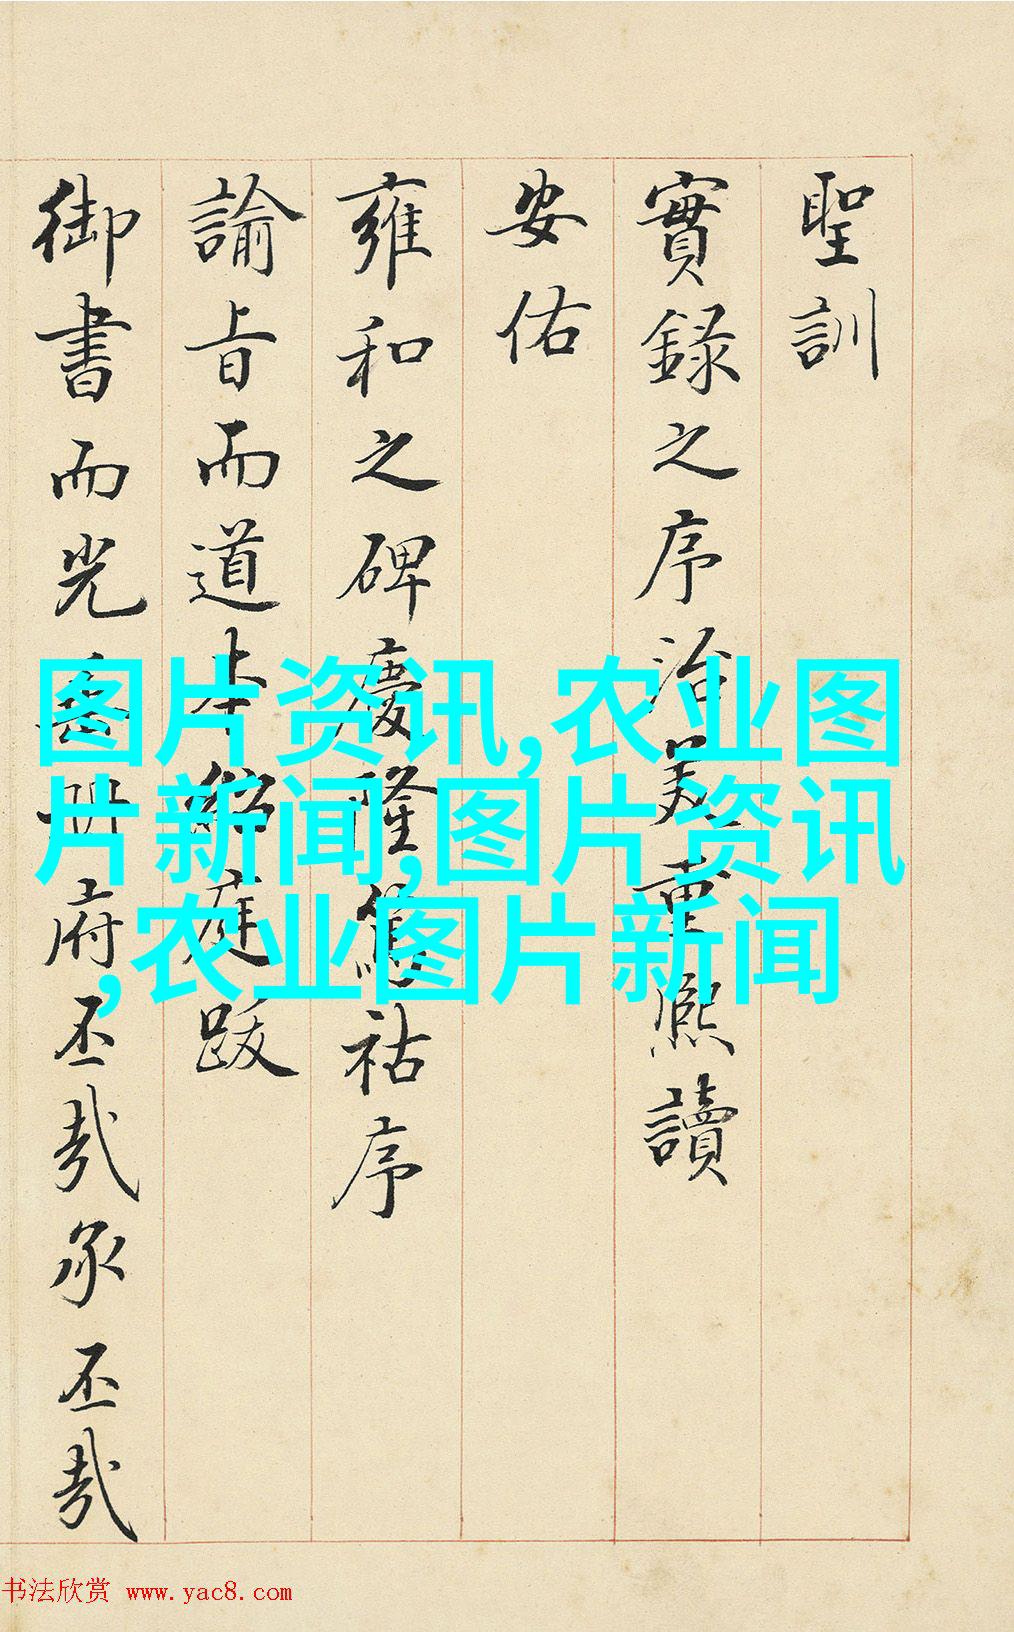 聖訓
實錄之序治美重熙讀
安佑
雍和之碑慶隆篤祜序
諭旨而道本締庭跋
御書而光垂册府丕哉永丕哉
图片资讯,农业图
片新闻,图片资讯
,农业图片新闻
书法欣赏 www.yac8.com